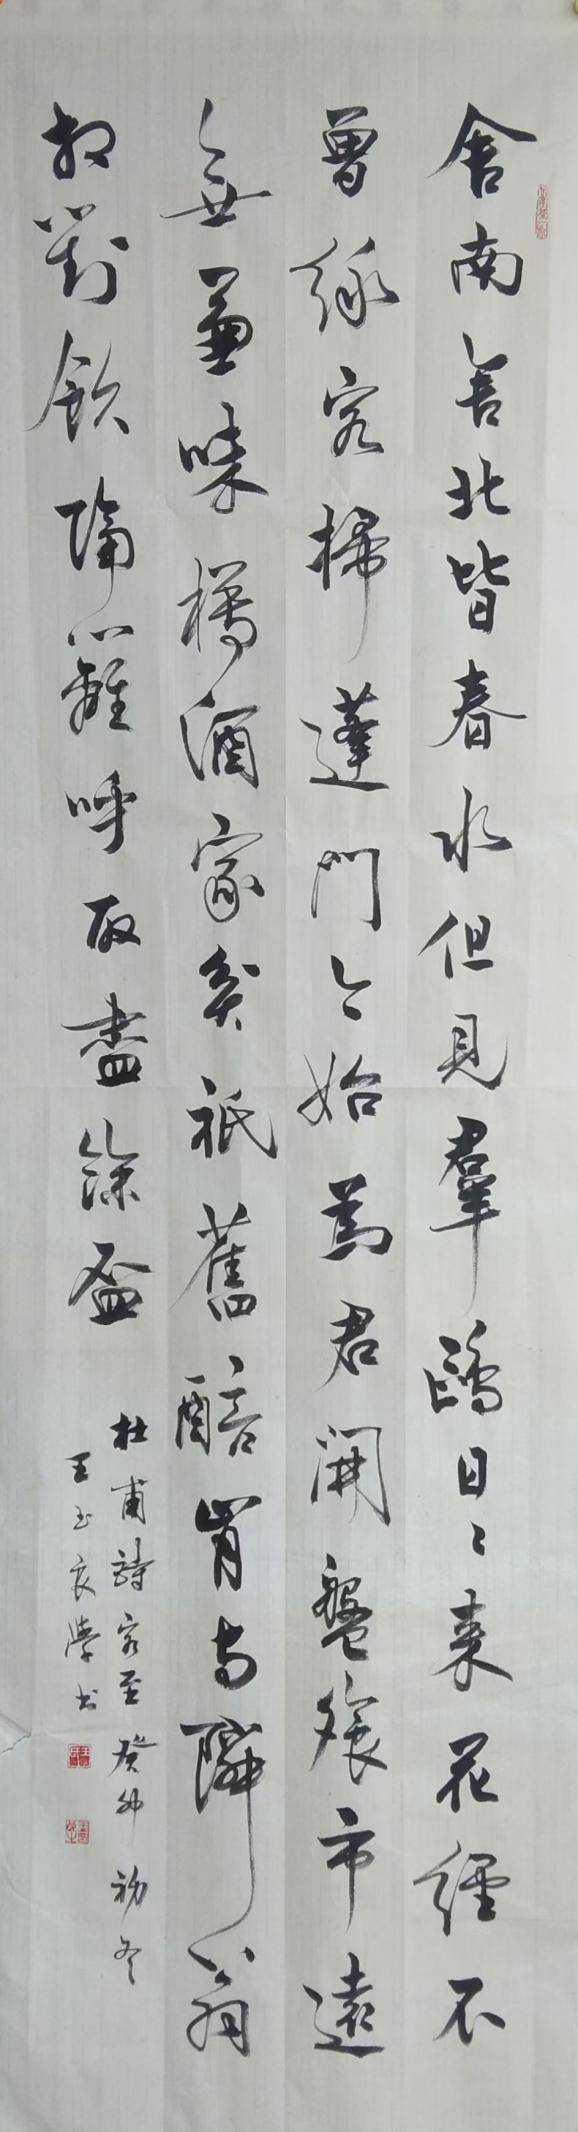 舍南舍北皆春水但見羣鷗日〻來花經不
曾緣客掃蓬門今始為君開盤飧市遠
無兼味樽酒家貧祇舊醅肯与隣翁
相對飲隔籬呼取盡餘盃
杜甫詩客至癸卯初冬
王玉良學书